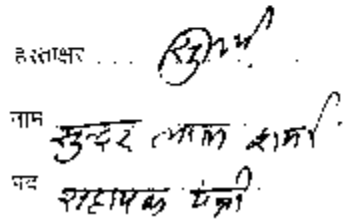 हस्ताक्षर ....
नाम सुन्दर लाल शर्मा
पद सहायक मंत्री